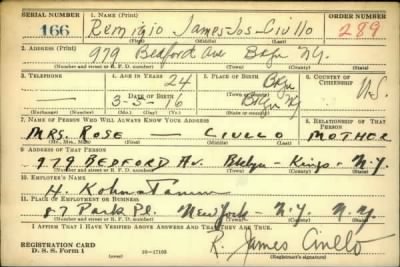 SERIAL NUMBER 1. NAME (Print) ORDER NUMBER
166 Remigio James-Jos- Ciullo 289
(First) (Middle) (Last)
2. ADDRESS (Print)
979 Bedford Ave Bkyn N.Y.
(Number and street or R. F. D. number) (Town) (County) (State)
3. TELEPHONE 4. AGE IN YEARS 5. PLACE OF BIRTH 6. COUNTRY OF CITIZENSHIP
— 24 Bkyn
DATE OF BIRTH (Town or county) U.S.
3-5-16 Bkyn N.Y.
(Exchange) (Number) (Mo.) (Day) (Yr.) (State or country)
7. NAME OF PERSON WHO WILL ALWAYS KNOW YOUR ADDRESS 8. RELATIONSHIP OF THAT PERSON
MRS. ROSE CIULLO MOTHER
(Mr., Mrs., Miss) (First) (Middle) (Last)
9. ADDRESS OF THAT PERSON
979 BEDFORD Av. Bklyn - Kings - N.Y.
(Number and street or R. F. D. number) (Town) (County) (State)
10. EMPLOYER'S NAME
H. Kohnstamm
11. PLACE OF EMPLOYMENT OR BUSINESS
87 Park Pl. New York - N.Y. N.Y.
(Number and street or R. F. D. number) (Town) (County) (State)
I AFFIRM THAT I HAVE VERIFIED ABOVE ANSWERS AND THAT THEY ARE TRUE.
REGISTRATION CARD R. James Ciullo
D. S. S. Form 1 16—17105 (Registrant's signature)